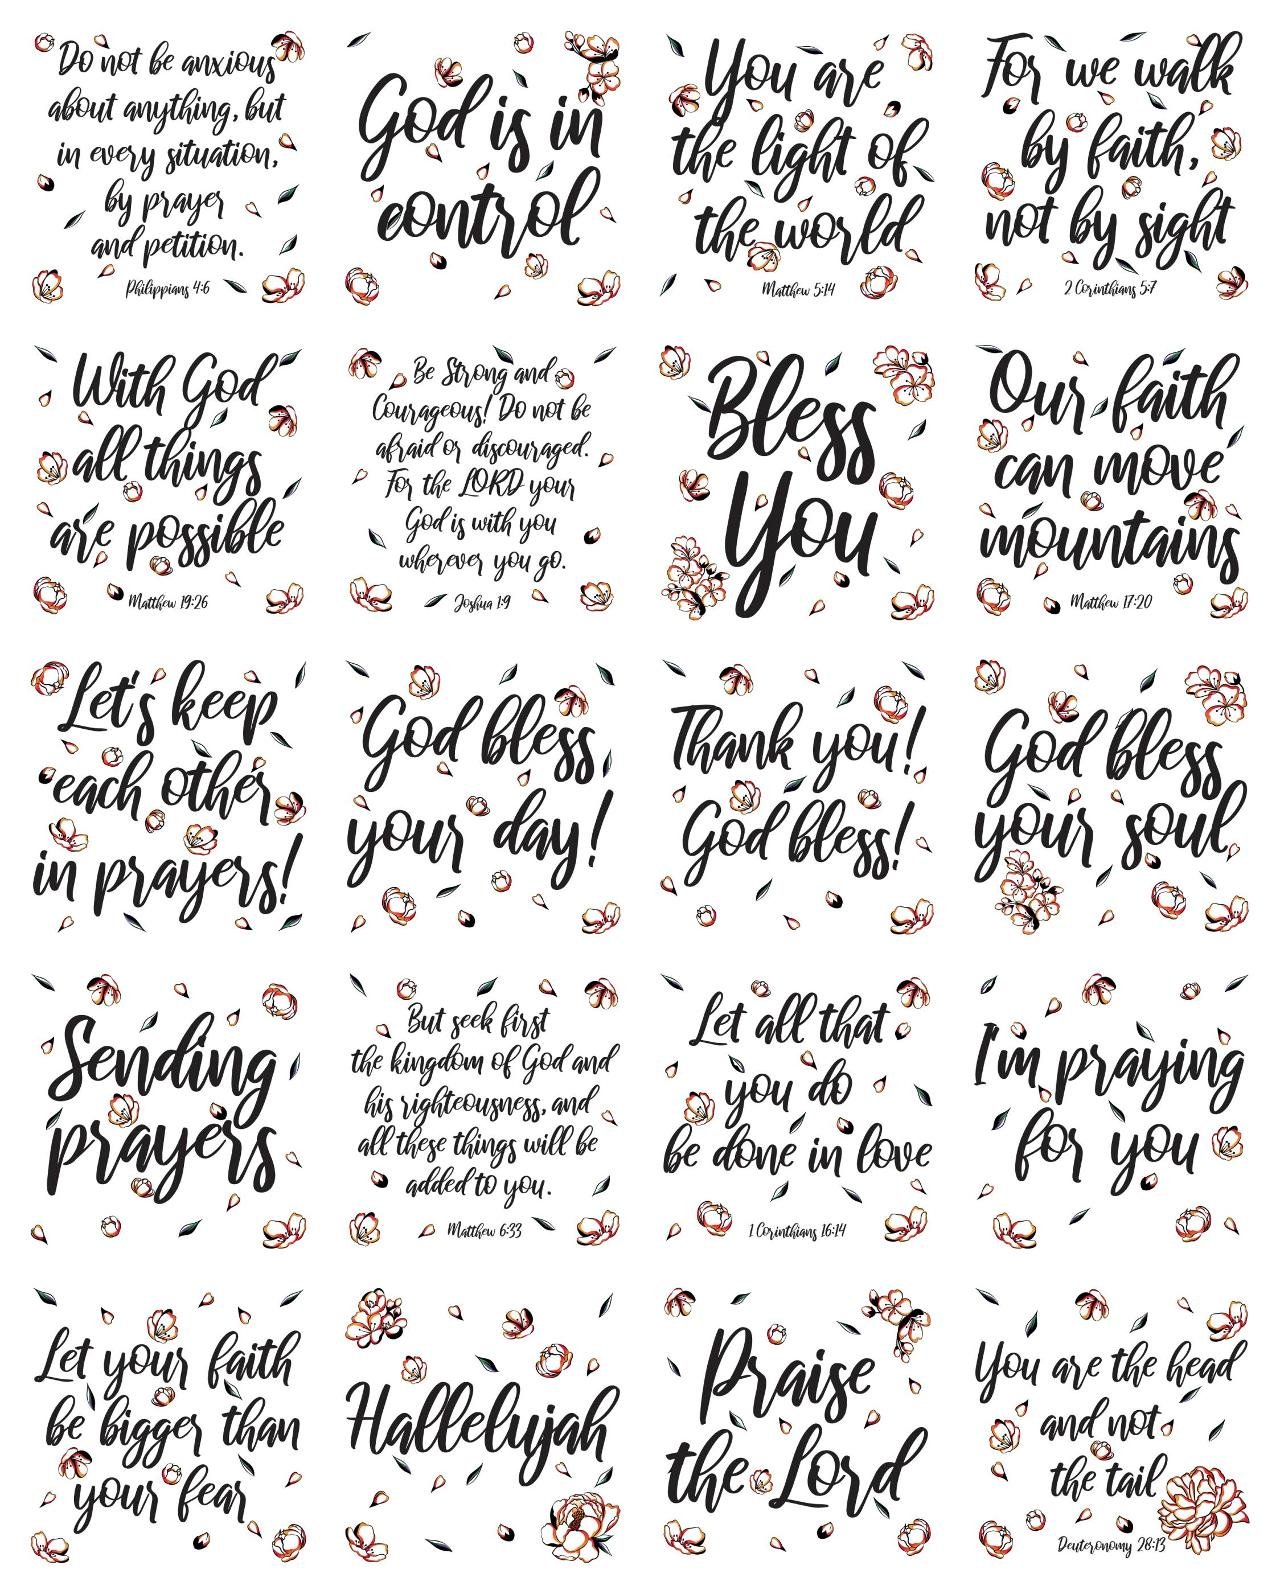 Do not be anxious
about anything, but
in every situation,
by prayer
and petition.
Philippians 4:6
God is in
control
You are
the light of
the world
Matthew 5:14
For we walk
by faith,
not by sight
2 Corinthians 5:7
With God
all things
are possible
Matthew 19:26
Be Strong and
Courageous! Do not be
afraid or discouraged.
For the LORD your
God is with you
wherever you go.
Joshua 1:9
Bless
You
Our faith
can move
mountains
Matthew 17:20
Let's keep
each other
in prayers!
God bless
your day!
Thank you!
God bless!
God bless
your soul
Sending
prayers
But seek first
the kingdom of God and
his righteousness, and
all these things will be
added to you.
Matthew 6:33
Let all that
you do
be done in love
1 Corinthians 16:14
I'm praying
for you
Let your faith
be bigger than
your fear
Hallelujah
Praise
the Lord
You are the head
and not
the tail
Deuteronomy 28:13